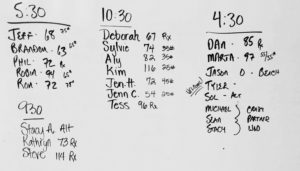 5:30
JEFF - 68 25#
BRANDON - 63 65#
PHIL - 72 Rx
ROBIN - 94 65#
RON - 72
930
Stacy A. Alt
Kathryn 73 Rx
Steve 114 Rx
10:30
Deborah 67 Rx
Sylvie 74 35#
Aly 82 35#
Kim 116 25#
Jen H. 72 45#
Jenn C. 54 25#
Tess 96 Rx
4:30
DAN - 85 Rx
MARTA - 97 55/35#
JASON O - BENCH
TYLER -
SOL - ALT
MICHAEL
SEAN
STACY
CRAZY
PARTNER
WOD